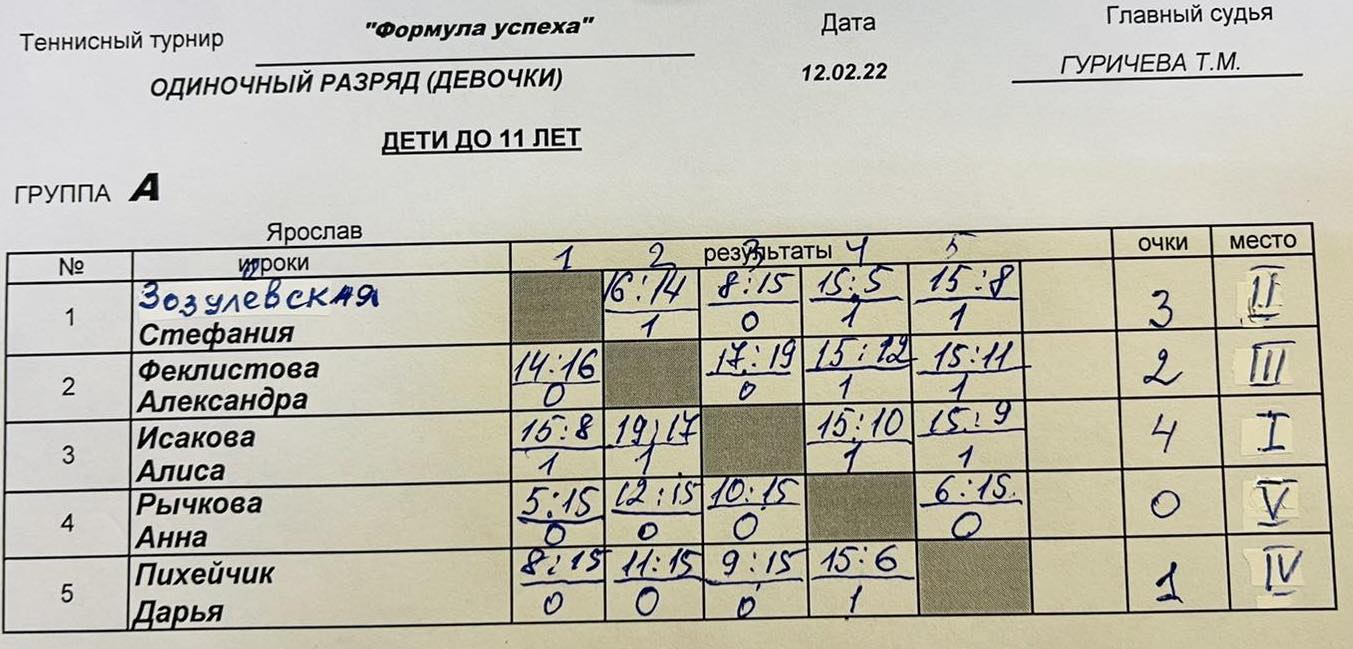 Теннисный турнир "Формула успеха" Дата Главный судья
ОДИНОЧНЫЙ РАЗРЯД (ДЕВОЧКИ) 12.02.22 ГУРИЧЕВА Т.М.
ДЕТИ ДО 11 ЛЕТ
ГРУППА А
Ярослав
№ игроки результаты очки место
1 2 3 4 5
1 Зозулевская 16:14 8:15 15:5 15:8 3 II
Стефания 1 0 1 1
2 Феклистова 14:16 17:19 15:12 15:11 2 III
Александра 0 0 1 1
3 Исакова 15:8 19:17 15:10 15:9 4 I
Алиса 1 1 1 1
4 Рычкова 5:15 12:15 10:15 6:15 0 V
Анна 0 0 0 0
5 Пихейчик 8:15 11:15 9:15 15:6 1 IV
Дарья 0 0 0 1